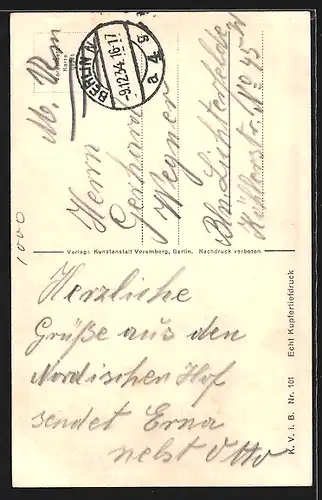 BERLIN N
-9.12.34.16-17
a 4 g
Herrn
Gerhard
Wegner
Bln Lichterfelde
N° 45
Verlag: Kunstanstalt Voremberg, Berlin. Nachdruck verboten
1000
Herzliche
Grüße aus den
Nordischen Hof
sendet Erna
nebst Otto
K. V. i. B. Nr. 101 Echt Kupfertiefdruck